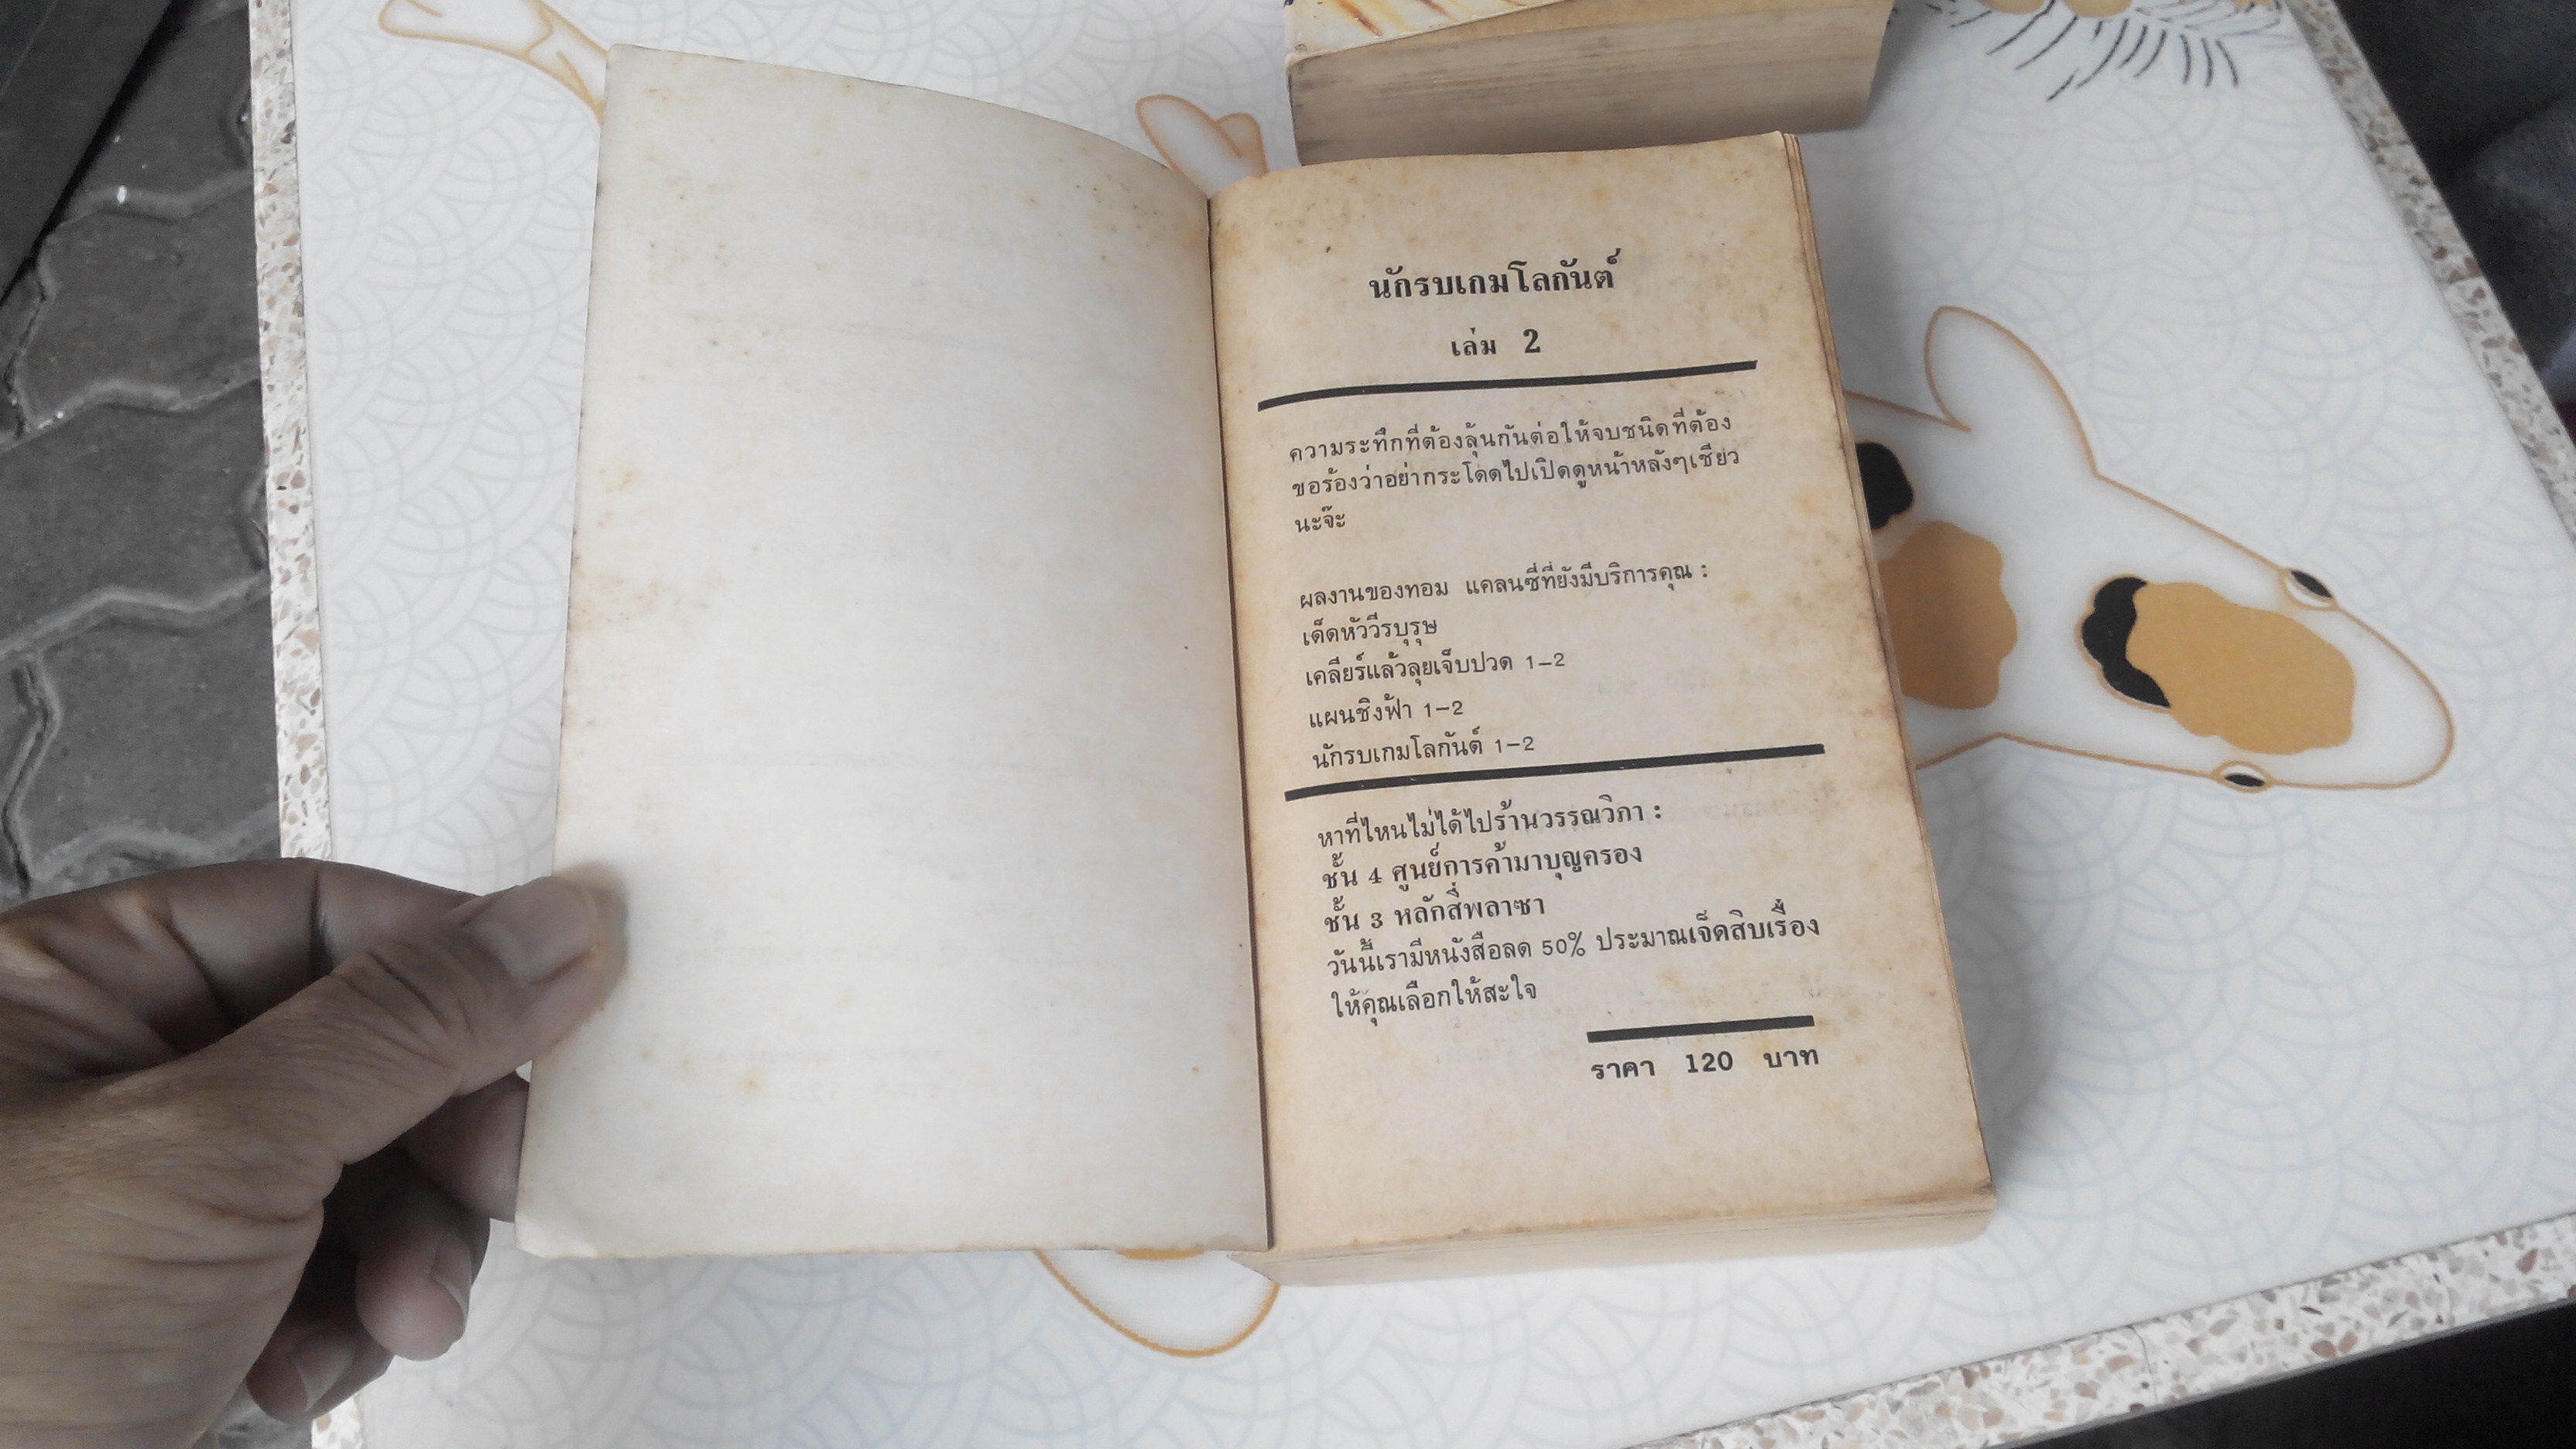 นักรบเกมโลกันต์
เล่ม 2
ความระทึกที่ต้องลุ้นกันต่อให้จบชนิดที่ต้อง
ขอร้องว่าอย่ากระโดดไปเปิดดูหน้าหลังๆเชียว
นะจ๊ะ
ผลงานของทอม แคลนซีที่ยังมีบริการคุณ :
เด็ดหัววีรบุรุษ
เคลียร์แล้วลุยเจ็บปวด 1-2
แผนชิงฟ้า 1-2
นักรบเกมโลกันต์ 1-2
หาที่ไหนไม่ได้ไปร้านวรรณวิภา :
ชั้น 4 ศูนย์การค้ามาบุญครอง
ชั้น 3 หลักสี่พลาซา
วันนี้เรามีหนังสือลด 50% ประมาณเจ็ดสิบเรื่อง
ให้คุณเลือกให้สะใจ
ราคา 120 บาท